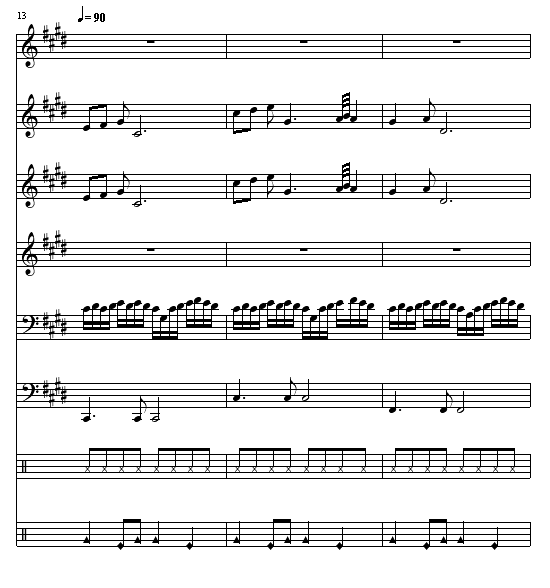 13
♩= 90